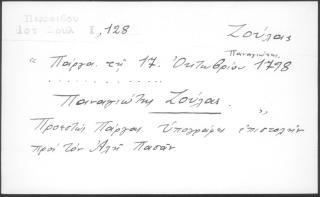 Περραιβού
Ιστ Σουλ Ι, 128
Ζούλας
Παναγιώτης
“ Πάργα τῇ 17. Ὀκτωβρίου 1798
. . . . . . . . . . .
Παναγιώτης Ζούλας. „
Προεστὼς Πάργας. Ὑπογράφει ἐπιστολὴν
πρὸς τὸν Ἀλῆ Πασᾶν